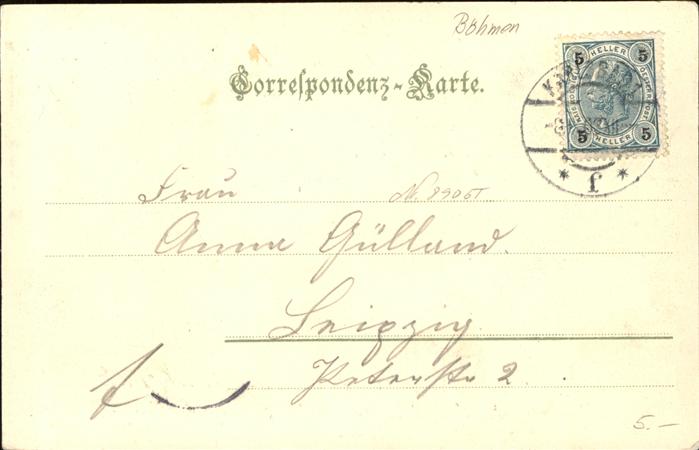 Böhmen
Correspondenz-Karte.
5 HELLER 5
5 HELLER 5
Frau
Anna Gülland.
Leipzig
Peterstr 2.
5.-